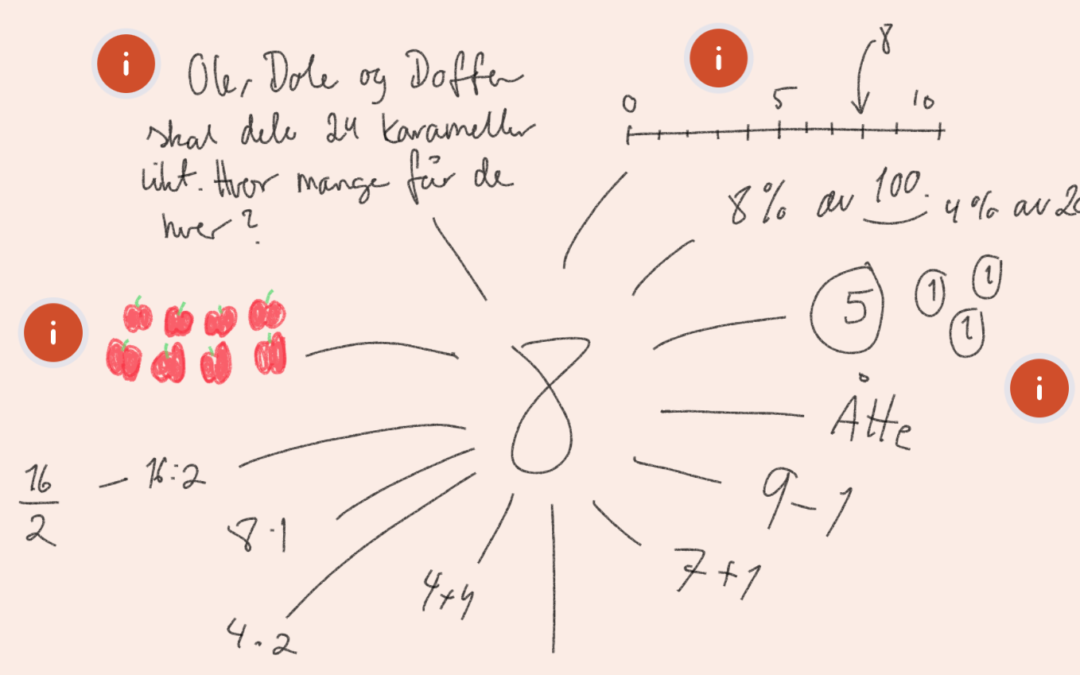 Ole, Dole og Doffen
skal dele 24 karameller
likt. Hvor mange får de
hver?
0 5 8 10
8% av 100. 4% av
5 1 1 1
Åtte
9-1
7+1
4+4
4·2
8·1
16:2
16
2
8
i
i
i
i